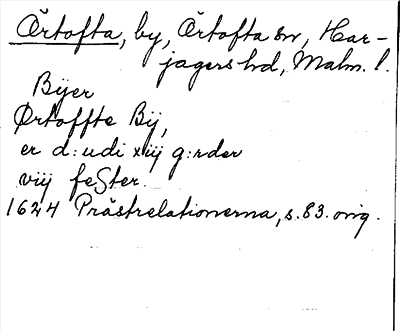 Örtofta, by, Örtofta sn, Har-
jagers hd, Malm. l.
Bÿer
Ørtoffte Bÿ,
er d:udi xiij g:rder
viij feSter.
1624 Prästrelationerna, s. 83. orig.